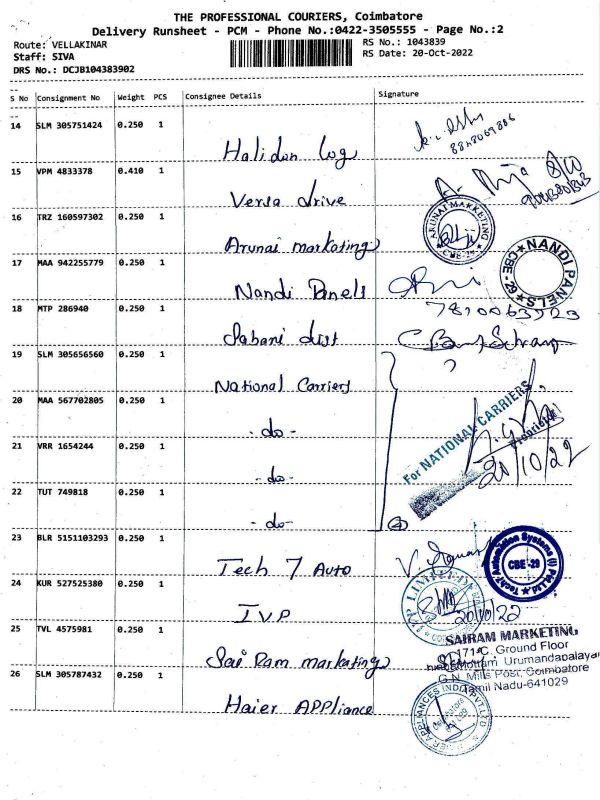 THE PROFESSIONAL COURIERS, Coimbatore
Delivery Runsheet - PCM - Phone No.:0422-3505555 - Page No.:2
Route: VELLAKINAR
RS No.: 1043839
Staff: SIVA
RS Date: 20-Oct-2022
DRS No.: DCJB104383902
S No Consignment No Weight PCS Consignee Details Signature
14 SLM 305751424 0.250 1
Halidon Log
15 VPM 4833378 0.410 1
Versa drive
16 TRZ 160597302 0.250 1
Arunai marketing
ARUNAI MARKETING
CBE-29
17 MAA 942255779 0.250 1
Nandi Panels
NANDI PANELS
CBE - 29
18 MTP 286940 0.250 1
Sabani dist
19 SLM 305656560 0.250 1
National Carriers
20 MAA 567702805 0.250 1
- do -
For NATIONAL CARRIERS
Proprietor
20/10/22
21 VRR 1654244 0.250 1
- do -
22 TUT 749818 0.250 1
- do -
4
23 BLR 5151103293 0.250 1
Tech 7 Auto
Tech7 Automation Systems (I) Pvt Ltd
CBE -29
24 KUR 527525380 0.250 1
IVP
20/10/22
25 TVL 4575981 0.250 1
Sai Ram marketing
SAIRAM MARKETING
171 C, Ground Floor
Urumandapalayam
G.N. Mills Post, Coimbatore
Tamil Nadu-641029
26 SLM 305787432 0.250 1
Haier APPliance